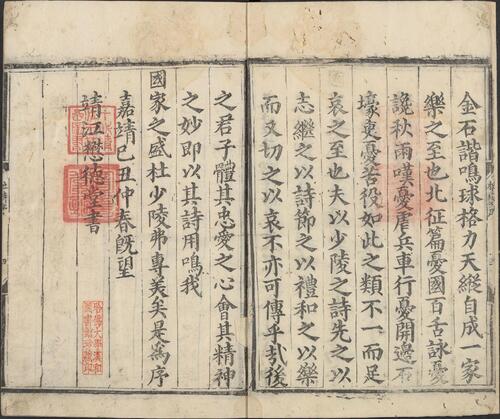 金石諧鳴球格力天縱自成一家
樂之至也北征篇憂國百舌詠憂
讒秋雨嘆憂虐兵車行憂開邊石
壕吏憂苦役如此之類不一而足
哀之至也夫以少陵之詩先之以
志繼之以詩節之以禮和之以樂
而又切之以哀不亦可傳乎哉後
之君子體其忠愛之心會其精神
之妙即以其詩用鳴我
國家之盛杜少陵弗專美矣是為序
嘉靖己丑仲春既望
靖江懋德堂書
哈佛大學漢和
圖書館珍藏印